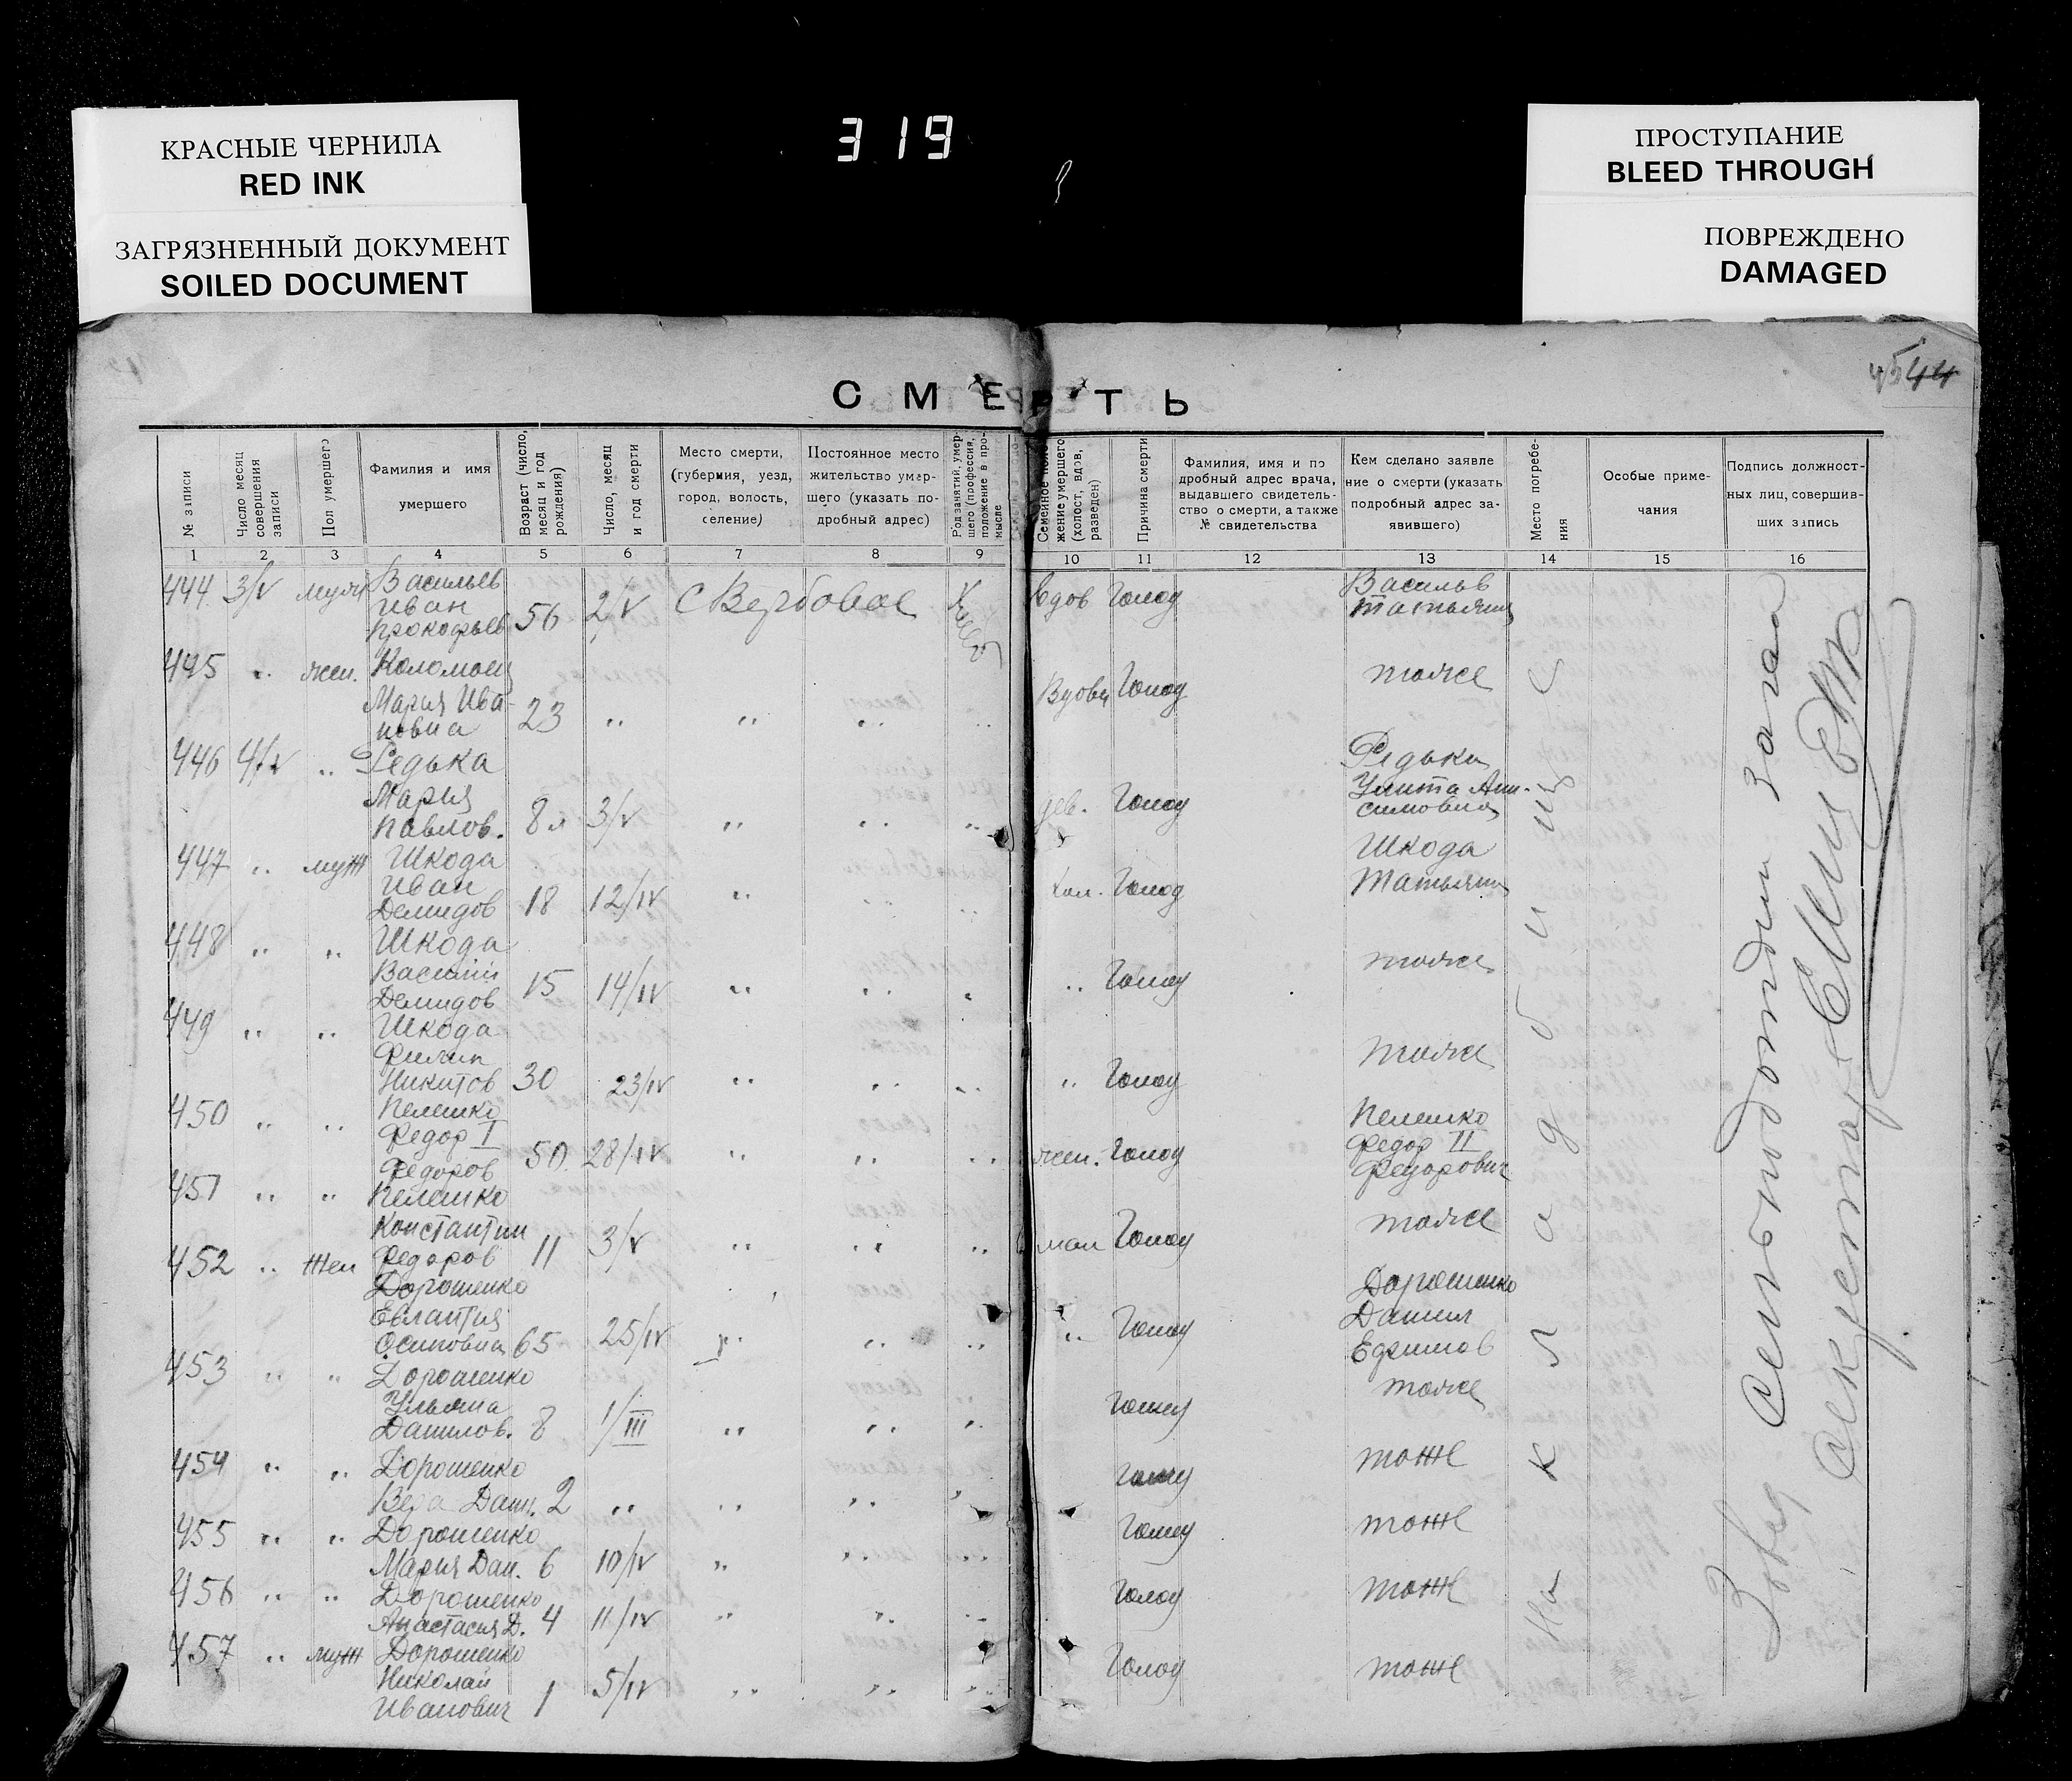 КРАСНЫЕ ЧЕРНИЛА
RED INK
ЗАГРЯЗНЕННЫЙ ДОКУМЕНТ
SOILED DOCUMENT
319
ПРОСТУПАНИЕ
BLEED THROUGH
ПОВРЕЖДЕНО
DAMAGED
СМЕРТЬ
№ записи
Число месяц
совершения
записи
Пол умершего
Фамилия и имя
умершего
Возраст (число,
месяц и год
рождения)
Число, месяц
и год смерти
Место смерти,
(губерния, уезд,
город, волость,
селение)
Постоянное место
жительство умер-
шего (указать по-
дробный адрес)
Род занятий, умер-
шего (профессия,
положение в про-
мысле
Семейное поло-
жение умершего
(холост, вдов,
разведен)
Причина смерти
Фамилия, имя и по
дробный адрес врача,
выдавшего свидетель-
ство о смерти, а также
№ свидетельства
Кем сделано заявле
ние о смерти (указать
подробный адрес за-
явившего)
Место погребе-
ния
Особые приме-
чания
Подпись должност-
ных лиц, совершив-
ших запись
1 2 3 4 5 6 7 8 9 10 11 12 13 14 15 16
444 3/V муж Васильев
Иван
Прокофьев 56 2/V с Вербовое вдов Голод Васильв
Татьяна
445 " жен. Коломоец
Мария Ива-
новна 23 " " " " Вдова Голод тоже
446 4/V " Редька
Мария
Павлов. 8 л 3/V " " " дев. Голод Редька
Улита Ани-
симовна
447 " муж Шкода
Иван
Демидов 18 12/IV " " " хол. Голод Шкода
Татьяна
448 " " Шкода
Василий
Демидов 15 14/IV " " " " Голод тоже
449 " " Шкода
Филип
Никитов 30 23/IV " " " " Голод тоже
450 " " Пелешко
Федор I
Федоров 50 28/IV " " " жен. Голод Пелешко
Федор II
Федорович
451 " " Пелешко
Константин
Федоров 11 3/V " " " мал Голод тоже
452 " Жен Дорошенко
Евлантия
Осиповна 65 25/IV " " " " Голод Дорошенко
Данил
Ефимов
453 " " Дорошенко
Ульяна
Данилов. 8 1/III " " " Голод тоже
454 " " Дорошенко
Вера Дан. 2 " " " " Голод тоже
455 " " Дорошенко
Мария Дан. 6 10/IV " " " Голод тоже
456 " " Дорошенко
Анастасия Д. 4 11/IV " " " Голод тоже
457 " муж Дорошенко
Николай
Иванович 1 5/IV " " " Голод тоже
На кладбище
Секретар